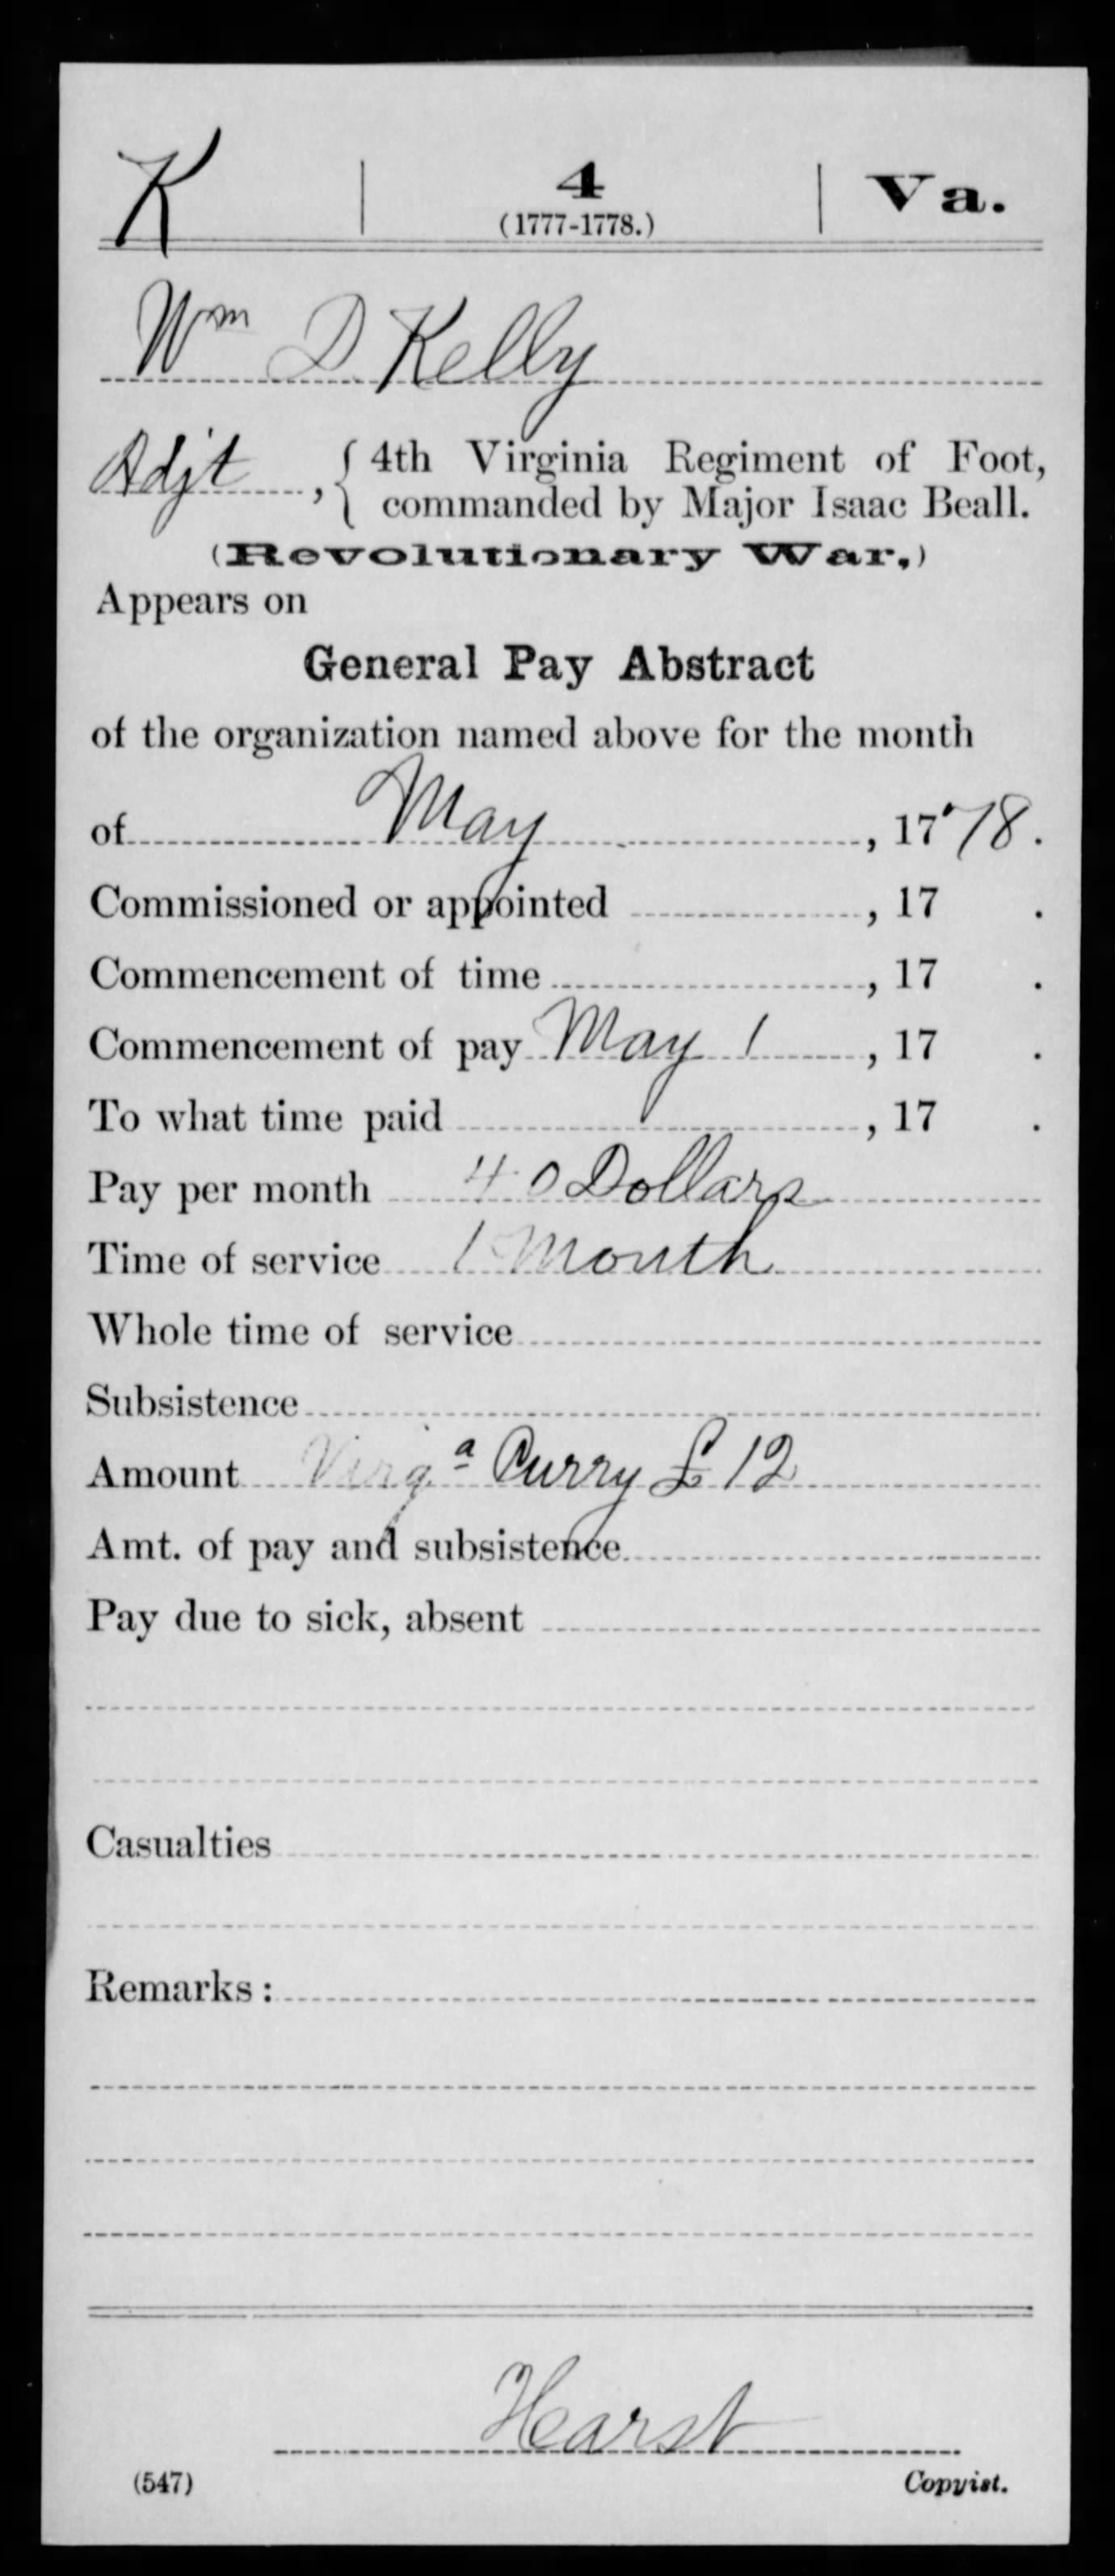 K 4 Va.
(1777-1778.)
Wm D Kelly
Adjt, { 4th Virginia Regiment of Foot,
commanded by Major Isaac Beall.
(Revolutionary War.)
Appears on
General Pay Abstract
of the organization named above for the month
of May, 1778.
Commissioned or appointed , 17 .
Commencement of time , 17 .
Commencement of pay May 1, 17 .
To what time paid , 17 .
Pay per month 40 Dollars
Time of service 1 Month
Whole time of service
Subsistence
Amount Virga Curry £ 12
Amt. of pay and subsistence
Pay due to sick, absent
Casualties
Remarks:
Harst
(547) Copyist.